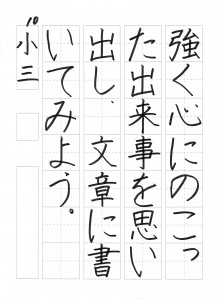 強く心にのこっ
た出来事を思い
出し、文章に書
いてみよう。
小三